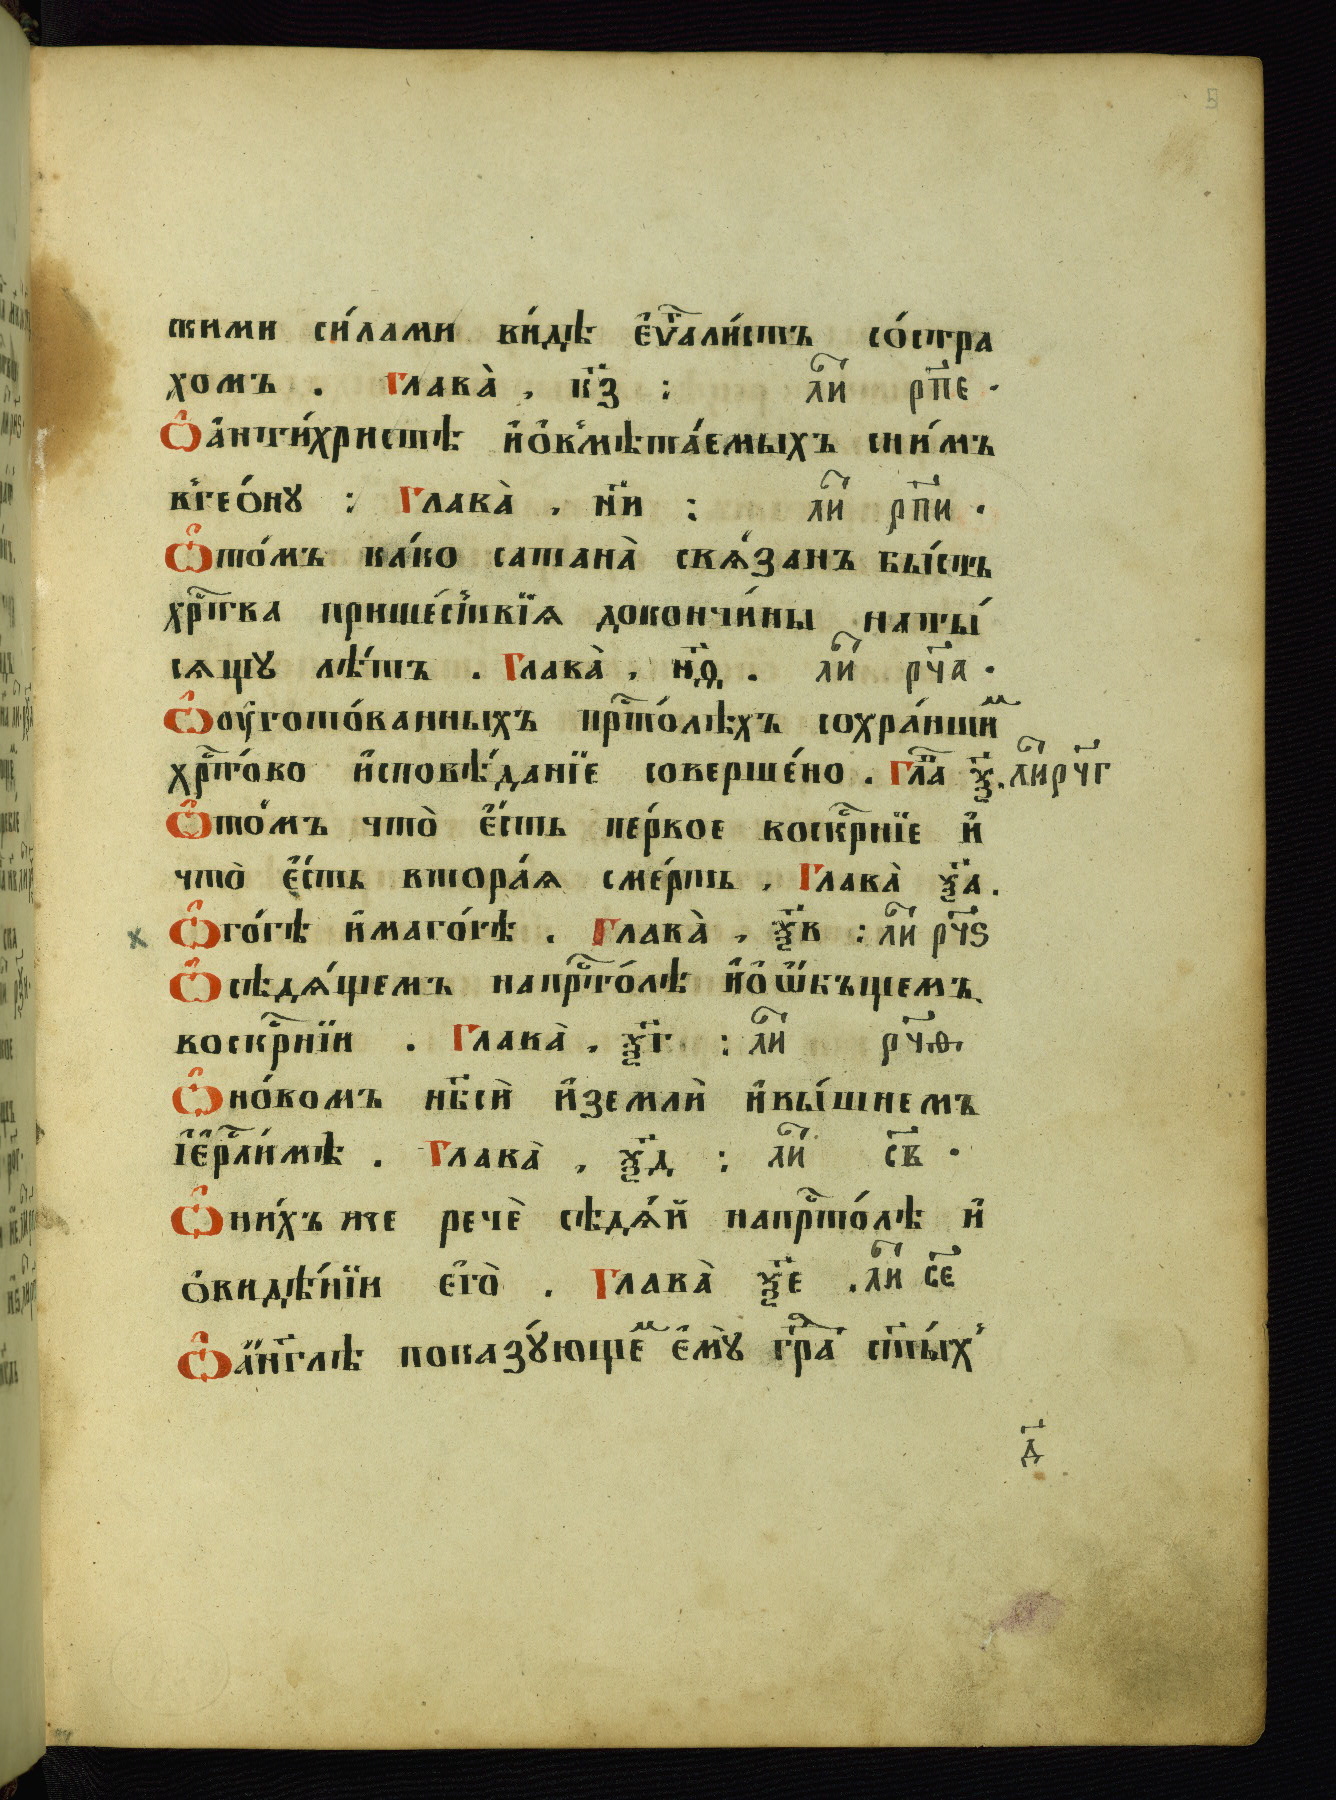 скими си́лами ви́дѣ є҆ѵⷢ҇али́стъ со́стра
хомъ . глава̀ , к҃з : ли҃ рп҃е ·
Ѽа҆нти́христѣ и҆ѻ҆вмѣта́емыхъ сни́мъ
вге́ѻнꙋ : Глава̀ , н҃и : ли҃ рп҃и ·
Ѽто́мъ ка́ко сатана̀ свѧ́занъ бы́сть
хрⷭ҇тва прише́ствїѧ докончи́ны наты́
сѧщꙋ лѣ́тъ . Глава̀ , н҃ѳ . ли҃ рч҃а ·
Ѽᲂу҆гото́ванныхъ прⷭ҇то́лѣхъ сохра́ншиⷨ
хрⷭ҇то́во и҆сповѣ́данїе соверше́но . Глⷡ҇а ѯ҃ . ли҃ рч҃г
Ѽто́мъ что̀ є҆́сть пе́рвое воскрⷭ҇нїе и҆
что̀ є҆́сть втора́ѧ сме́рть , Глава̀ ѯ҃а .
Ѽго́гѣ и҆маго́гѣ . Глава̀ , ѯ҃в : ли҃ рч҃ѕ
Ѽсѣдѧ́щемъ напрⷭ҇то́лѣ и҆ѻ҆ѡ҆́бъщемъ
воскрⷭ҇нїи . Глава̀ , ѯ҃г : ли҃ рч҃ѳ
Ѽно́вомъ нб҃сѝ и҆землѝ и҆вы́шнемъ
і҆є҆рⷭ҇ли́мѣ . Глава̀ , ѯ҃д : ли҃ с҃в ·
Ѽни́хъ же речѐ сѣдѧ́й напрⷭ҇то́лѣ и҆
ѻ҆видѣ́нїи є҆гѡ̀ . Глава̀ ѯ҃е . ли҃ с҃е
Ѽа҆́нг҃лѣ показꙋ́ющеⷨ є҆мꙋ̀ гра҃ⷣ ст҃ы́х
д҃